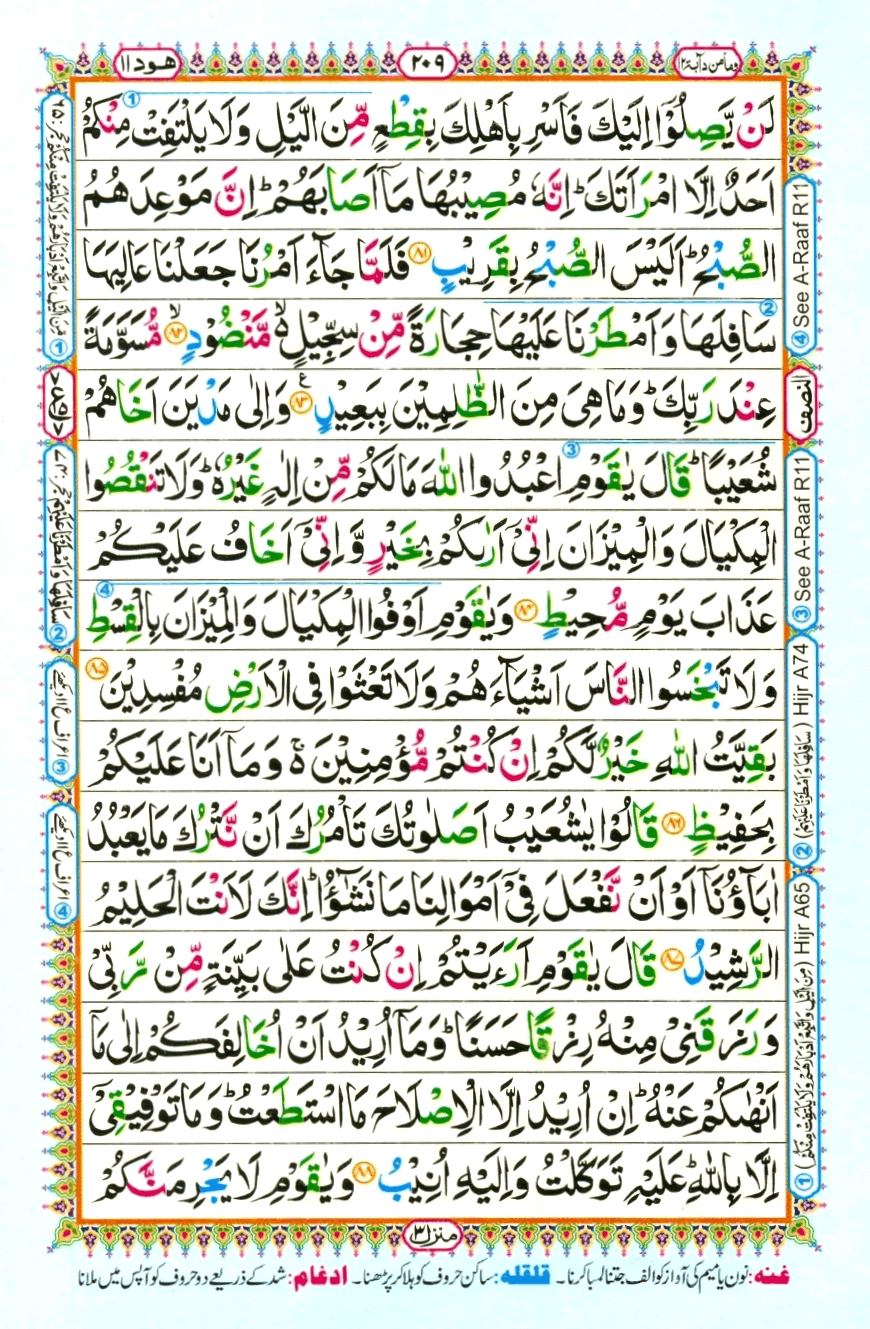 ومامن دآبة ١٢
٢٠٩
هود ١١
لَنْ يَّصِلُوْۤا اِلَيْكَ فَاَسْرِ بِاَهْلِكَ بِقِطْعٍ مِّنَ الَّيْلِ وَلَا يَلْتَفِتْ مِنْكُمْ
اَحَدٌ اِلَّا امْرَاَتَكَ ؕ اِنَّهٗ مُصِيْبُهَا مَاۤ اَصَابَهُمْ ؕ اِنَّ مَوْعِدَهُمُ
الصُّبْحُ ؕ اَلَيْسَ الصُّبْحُ بِقَرِيْبٍ ﴿٨١﴾ فَلَمَّا جَآءَ اَمْرُنَا جَعَلْنَا عَالِيَهَا
سَافِلَهَا وَاَمْطَرْنَا عَلَيْهَا حِجَارَةً مِّنْ سِجِّيْلٍ ۙ مَّنْضُوْدٍ ۙ﴿٨٢﴾ مُّسَوَّمَةً
عِنْدَ رَبِّكَ ؕ وَمَا هِيَ مِنَ الظّٰلِمِيْنَ بِبَعِيْدٍ ﴿٨٣﴾ ع وَاِلٰى مَدْيَنَ اَخَاهُمْ
شُعَيْبًا ؕ قَالَ يٰقَوْمِ اعْبُدُوا اللّٰهَ مَا لَكُمْ مِّنْ اِلٰهٍ غَيْرُهٗ ؕ وَلَا تَنْقُصُوا
الْمِكْيَالَ وَالْمِيْزَانَ اِنِّيْۤ اَرٰىكُمْ بِخَيْرٍ وَّاِنِّيْۤ اَخَافُ عَلَيْكُمْ
عَذَابَ يَوْمٍ مُّحِيْطٍ ﴿٨٤﴾ وَيٰقَوْمِ اَوْفُوا الْمِكْيَالَ وَالْمِيْزَانَ بِالْقِسْطِ
وَلَا تَبْخَسُوا النَّاسَ اَشْيَآءَهُمْ وَلَا تَعْثَوْا فِى الْاَرْضِ مُفْسِدِيْنَ ﴿٨٥﴾
بَقِيَّتُ اللّٰهِ خَيْرٌ لَّكُمْ اِنْ كُنْتُمْ مُّؤْمِنِيْنَ ۚ۬ وَمَاۤ اَنَا عَلَيْكُمْ
بِحَفِيْظٍ ﴿٨٦﴾ قَالُوْا يٰشُعَيْبُ اَصَلٰوتُكَ تَاْمُرُكَ اَنْ نَّتْرُكَ مَا يَعْبُدُ
اٰبَآؤُنَاۤ اَوْ اَنْ نَّفْعَلَ فِيْۤ اَمْوَالِنَا مَا نَشٰٓؤُا ؕ اِنَّكَ لَاَنْتَ الْحَلِيْمُ
الرَّشِيْدُ ﴿٨٧﴾ قَالَ يٰقَوْمِ اَرَءَيْتُمْ اِنْ كُنْتُ عَلٰى بَيِّنَةٍ مِّنْ رَّبِّيْ
وَرَزَقَنِيْ مِنْهُ رِزْقًا حَسَنًا ؕ وَمَاۤ اُرِيْدُ اَنْ اُخَالِفَكُمْ اِلٰى مَاۤ
اَنْهٰىكُمْ عَنْهُ ؕ اِنْ اُرِيْدُ اِلَّا الْاِصْلَاحَ مَا اسْتَطَعْتُ ؕ وَمَا تَوْفِيْقِيْۤ
اِلَّا بِاللّٰهِ ؕ عَلَيْهِ تَوَكَّلْتُ وَاِلَيْهِ اُنِيْبُ ﴿٨٨﴾ وَيٰقَوْمِ لَا يَجْرِمَنَّكُمْ
④ See A-Raaf R11
النصف
③ See A-Raaf R11
② Hijr A74 (سَافِلَهَا وَاَمْطَرْنَا عَلَيْهِمْ)
① Hijr A65 (مِنَ الَّيْلِ وَاتَّبِعْ اَدْبَارَهُمْ وَلَا يَلْتَفِتْ مِنْكُمْ)
① مِنَ الَّيْلِ وَاتَّبِعْ اَدْبَارَهُمْ وَلَا يَلْتَفِتْ مِنْكُمْ حجر: ٦٥
② سَافِلَهَا وَاَمْطَرْنَا عَلَيْهِمْ حجر: ٧٤
③ اعراف ع١١ دیکھئے
④ اعراف ع١١ دیکھئے
منزل ٣
غنه: نون یا میم کی آواز کو الف جتنا لمبا کرنا۔ قلقله: ساکن حروف کو ہلا کر پڑھنا۔ ادغام: شد کے ذریعے دو حروف کو آپس میں ملانا